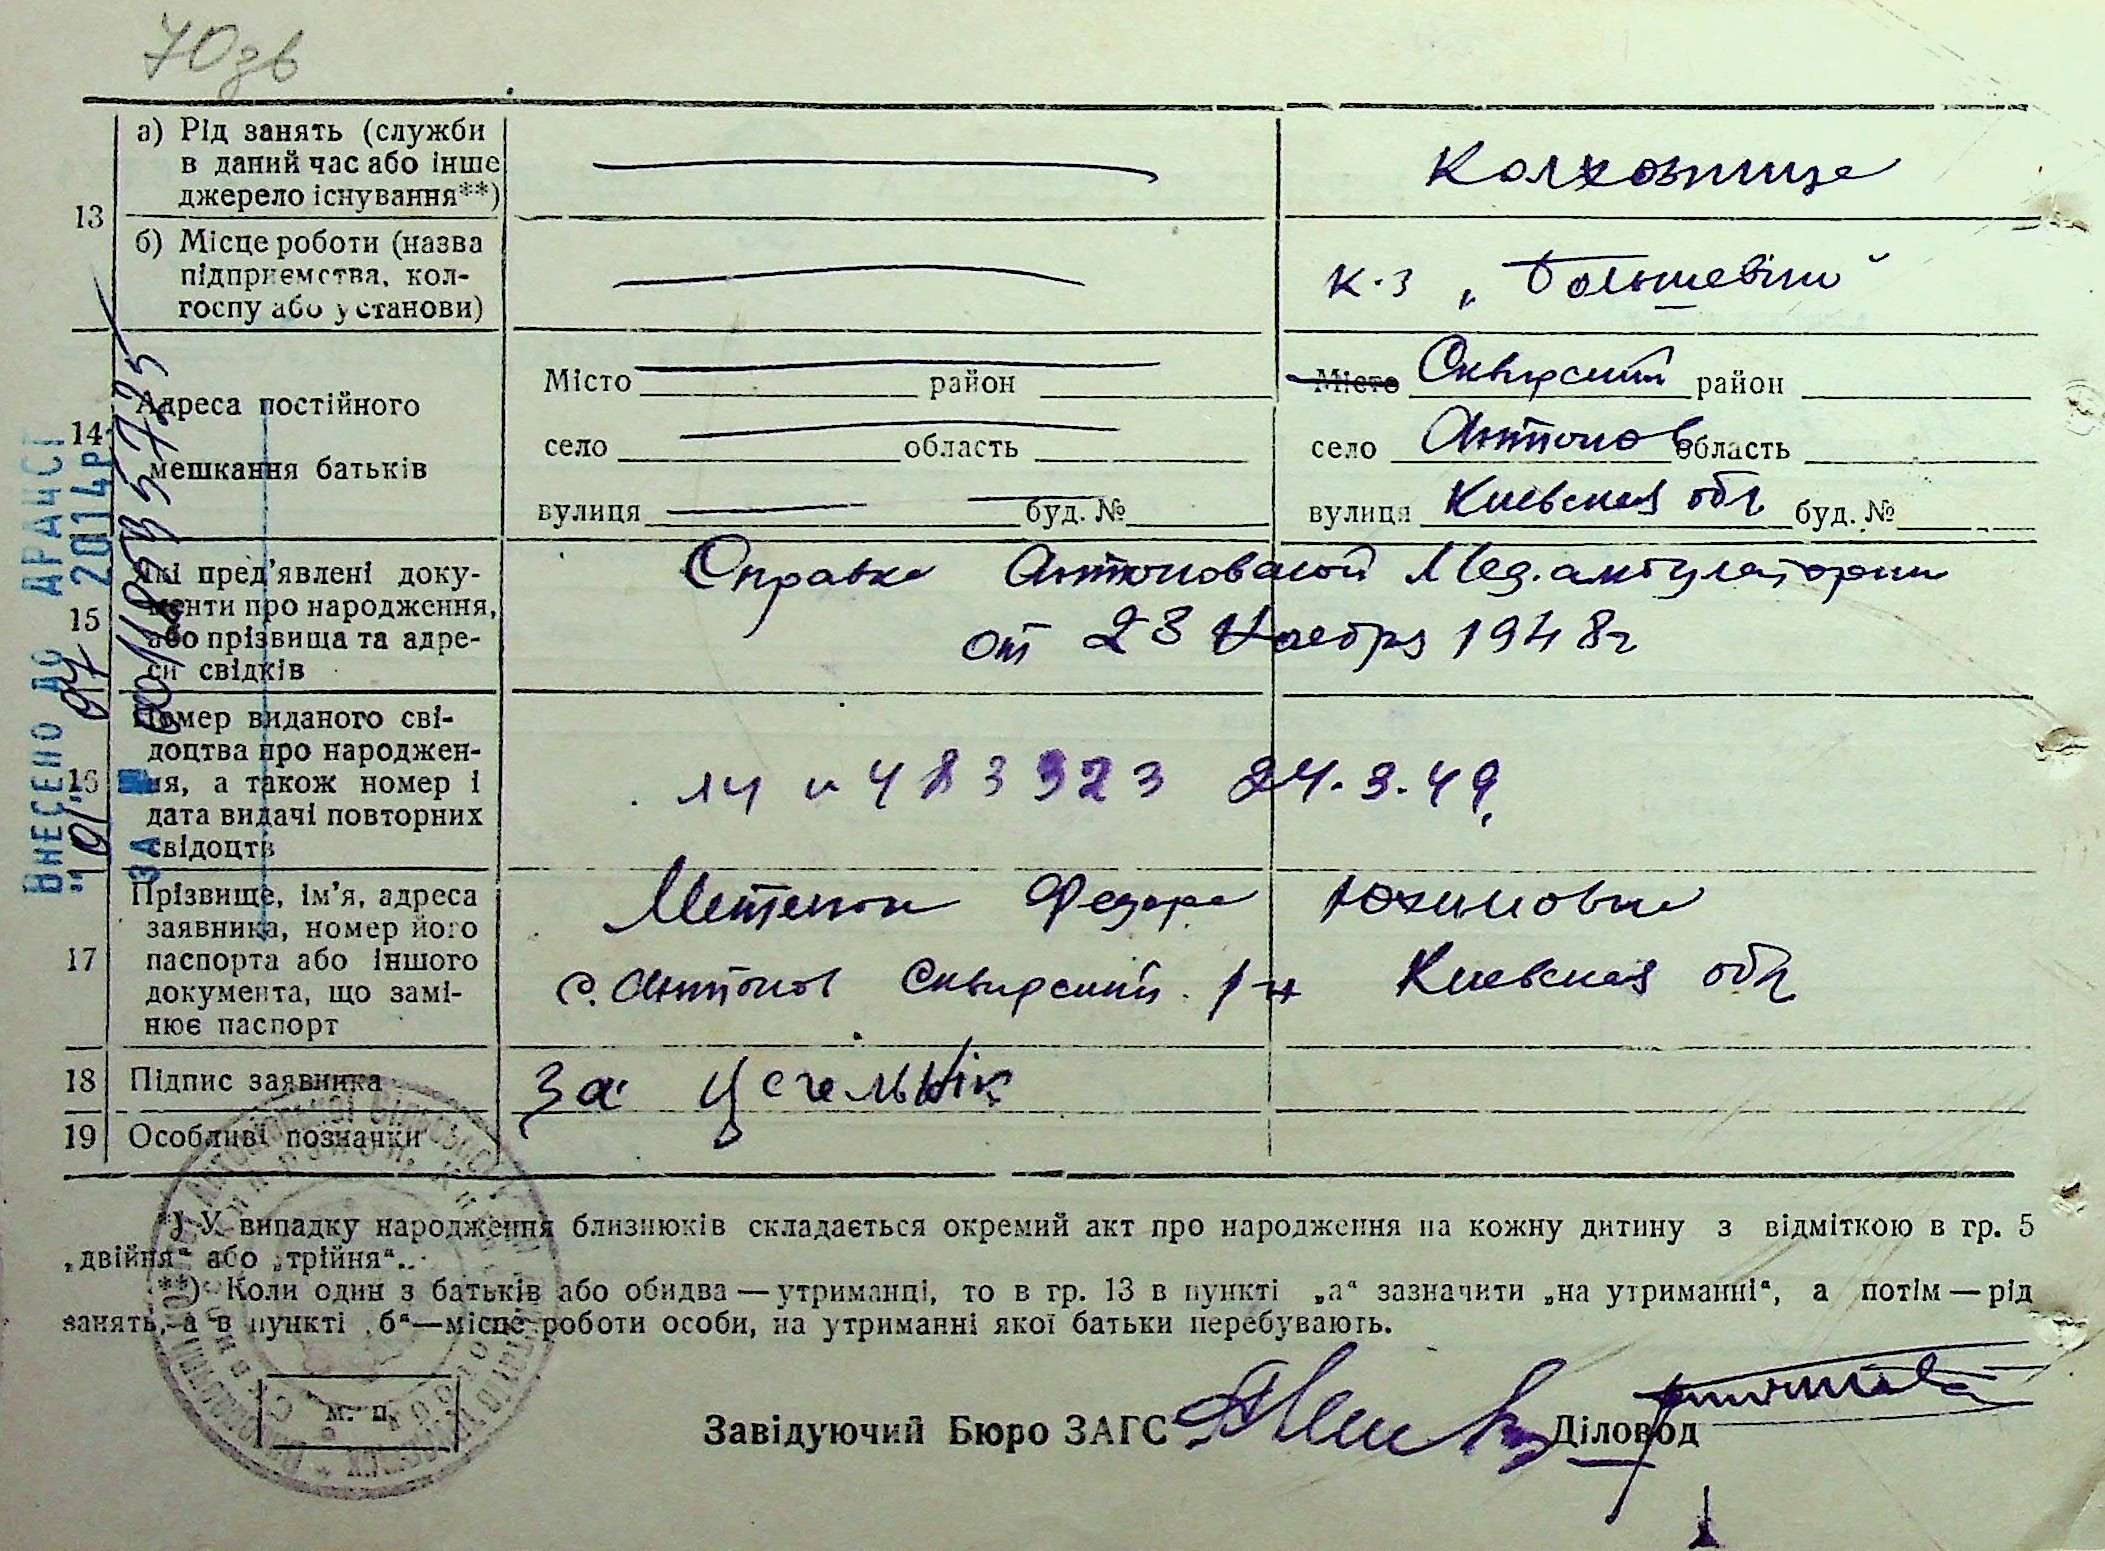 70зв
13
а) Рід занять (служби
в даний час або інше
джерело існування**)
Колхозница
б) Місце роботи (назва
підприємства, кол-
госпу або установи)
к-з „Большевік"
14
Адреса постійного
мешкання батьків
Місто район
село область
вулиця буд. №
Місто Сквирский район
село Антонов область
вулиця Киевская обл. буд. №
15
Які пред'явлені доку-
менти про народження,
або прізвища та адре-
си свідків
Справка Антоновской Мед.амбулатории
от 23 Ноября 1948г
16
Номер виданого сві-
доцтва про народжен-
ня, а також номер і
дата видачі повторних
свідоцтв
483323 24.3.49.
17
Прізвище, ім'я, адреса
заявника, номер його
паспорта або іншого
документа, що замі-
нює паспорт
Федора Юхимовна
с. Антонов Сквирский р-н Киевская обл.
18 Підпис заявника
За
19 Особливі позначки
*) У випадку народження близнюків складається окремий акт про народження на кожну дитину з відміткою в гр. 5
„двійня" або „трійня"..
**) Коли один з батьків або обидва—утриманці, то в гр. 13 в пункті „а" зазначити „на утриманні", а потім—рід
занять, а в пункті „б"—місце роботи особи, на утриманні якої батьки перебувають.
м. п.
Завідуючий Бюро ЗАГС
Діловод
ВНЕСЕНО ДО ДРАЦСГ
2014р
ЗА